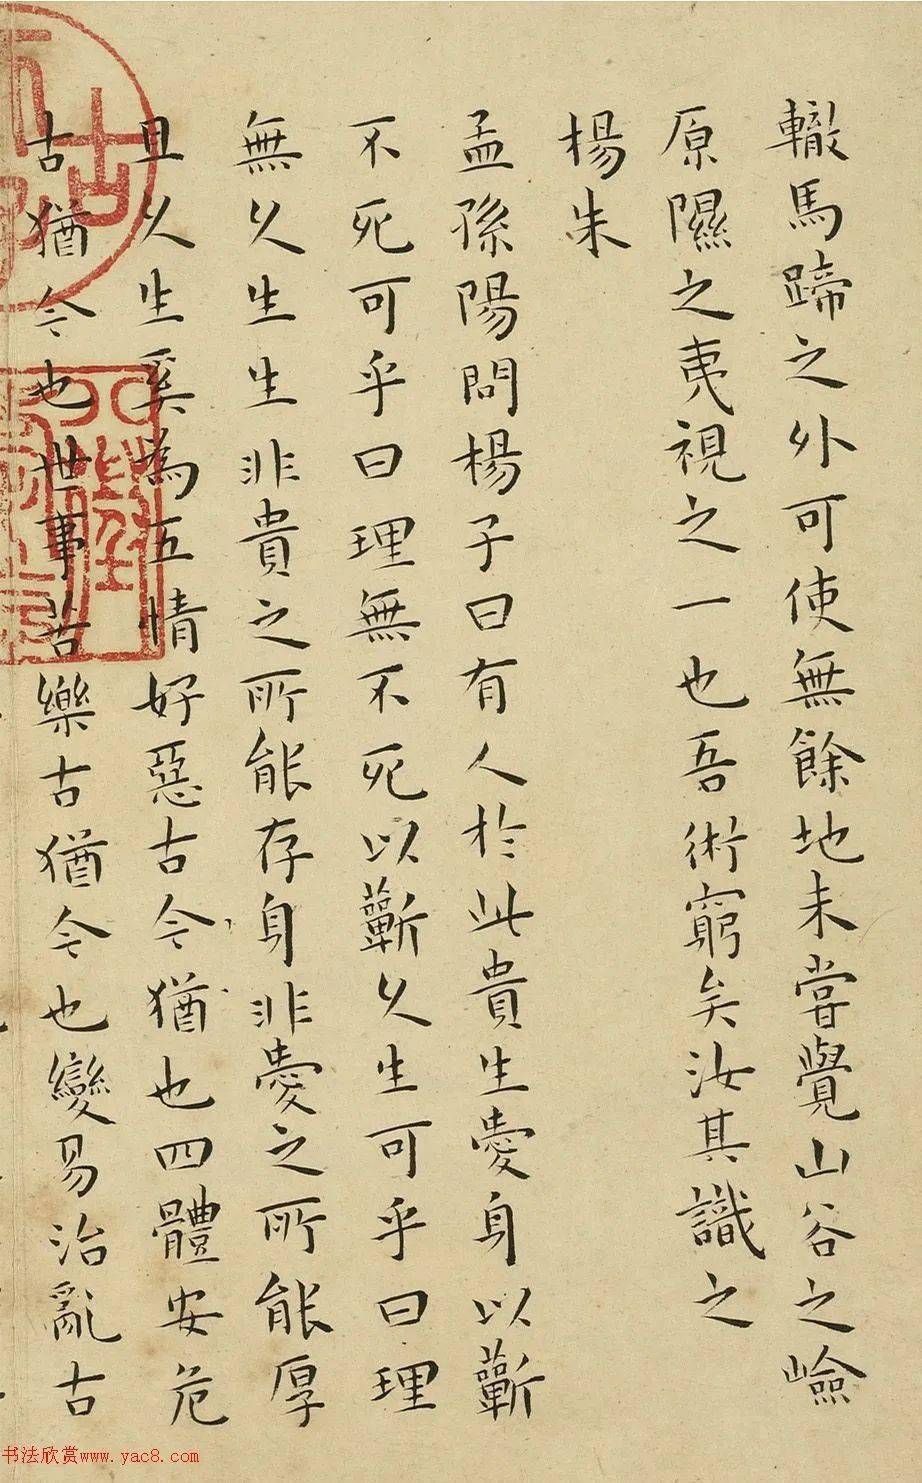 轍馬蹄之外可使無餘地未嘗覺山谷之嶮
原隰之夷視之一也吾術窮矣汝其識之
楊朱
孟孫陽問楊子曰有人於此貴生愛身以蘄
不死可乎曰理無不死以蘄久生可乎曰理
無久生生非貴之所能存身非愛之所能厚
且久生奚為五情好惡古今猶也四體安危
古猶今也世事苦樂古猶今也變易治亂古
书法欣赏www.yac8.com